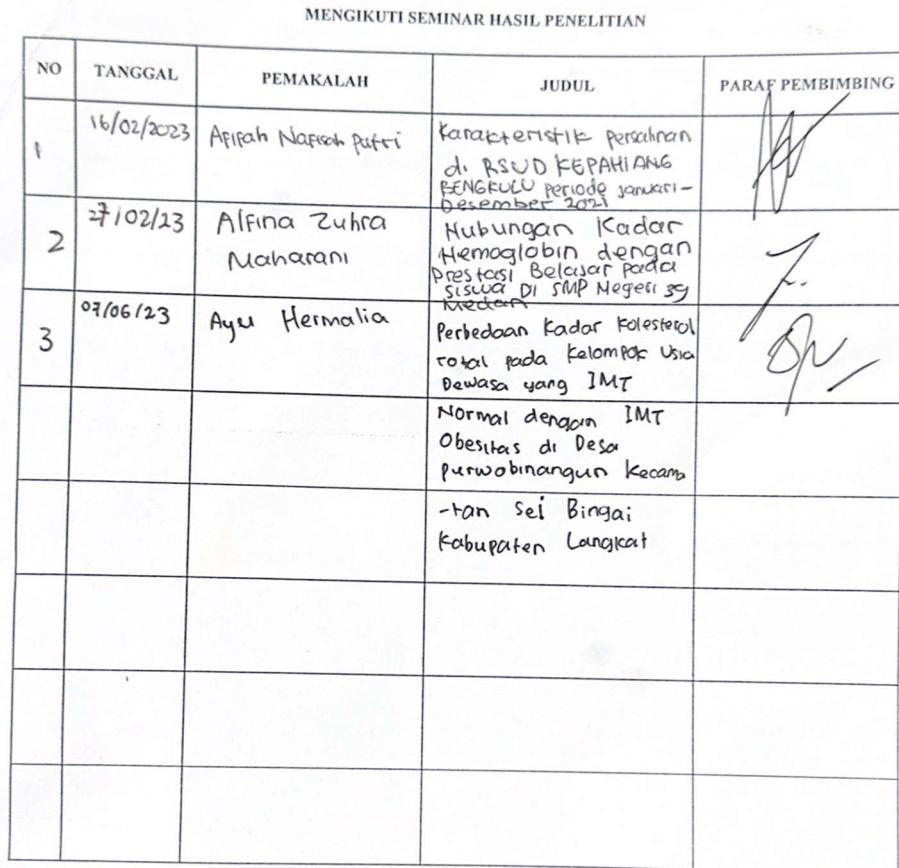 MENGIKUTI SEMINAR HASIL PENELITIAN
NO TANGGAL PEMAKALAH JUDUL PARAF PEMBIMBING
1 16/02/2023 Afifah Nafisah Putri Karakteristik persalinan
di RSUD KEPAHIANG
BENGKULU periode januari-
Desember 2021
2 27/02/23 Alfina Zuhra Hubungan Kadar
Maharani Hemoglobin dengan
Prestasi Belajar pada
Siswa Di SMP Negeri 39
Medan
3 07/06/23 Ayu Hermalia Perbedaan Kadar Kolesterol
total pada Kelompok Usia
Dewasa yang IMT
Normal dengan IMT
Obesitas di Desa
purwobinangun Kecama
-tan Sei Bingai
Kabupaten Langkat